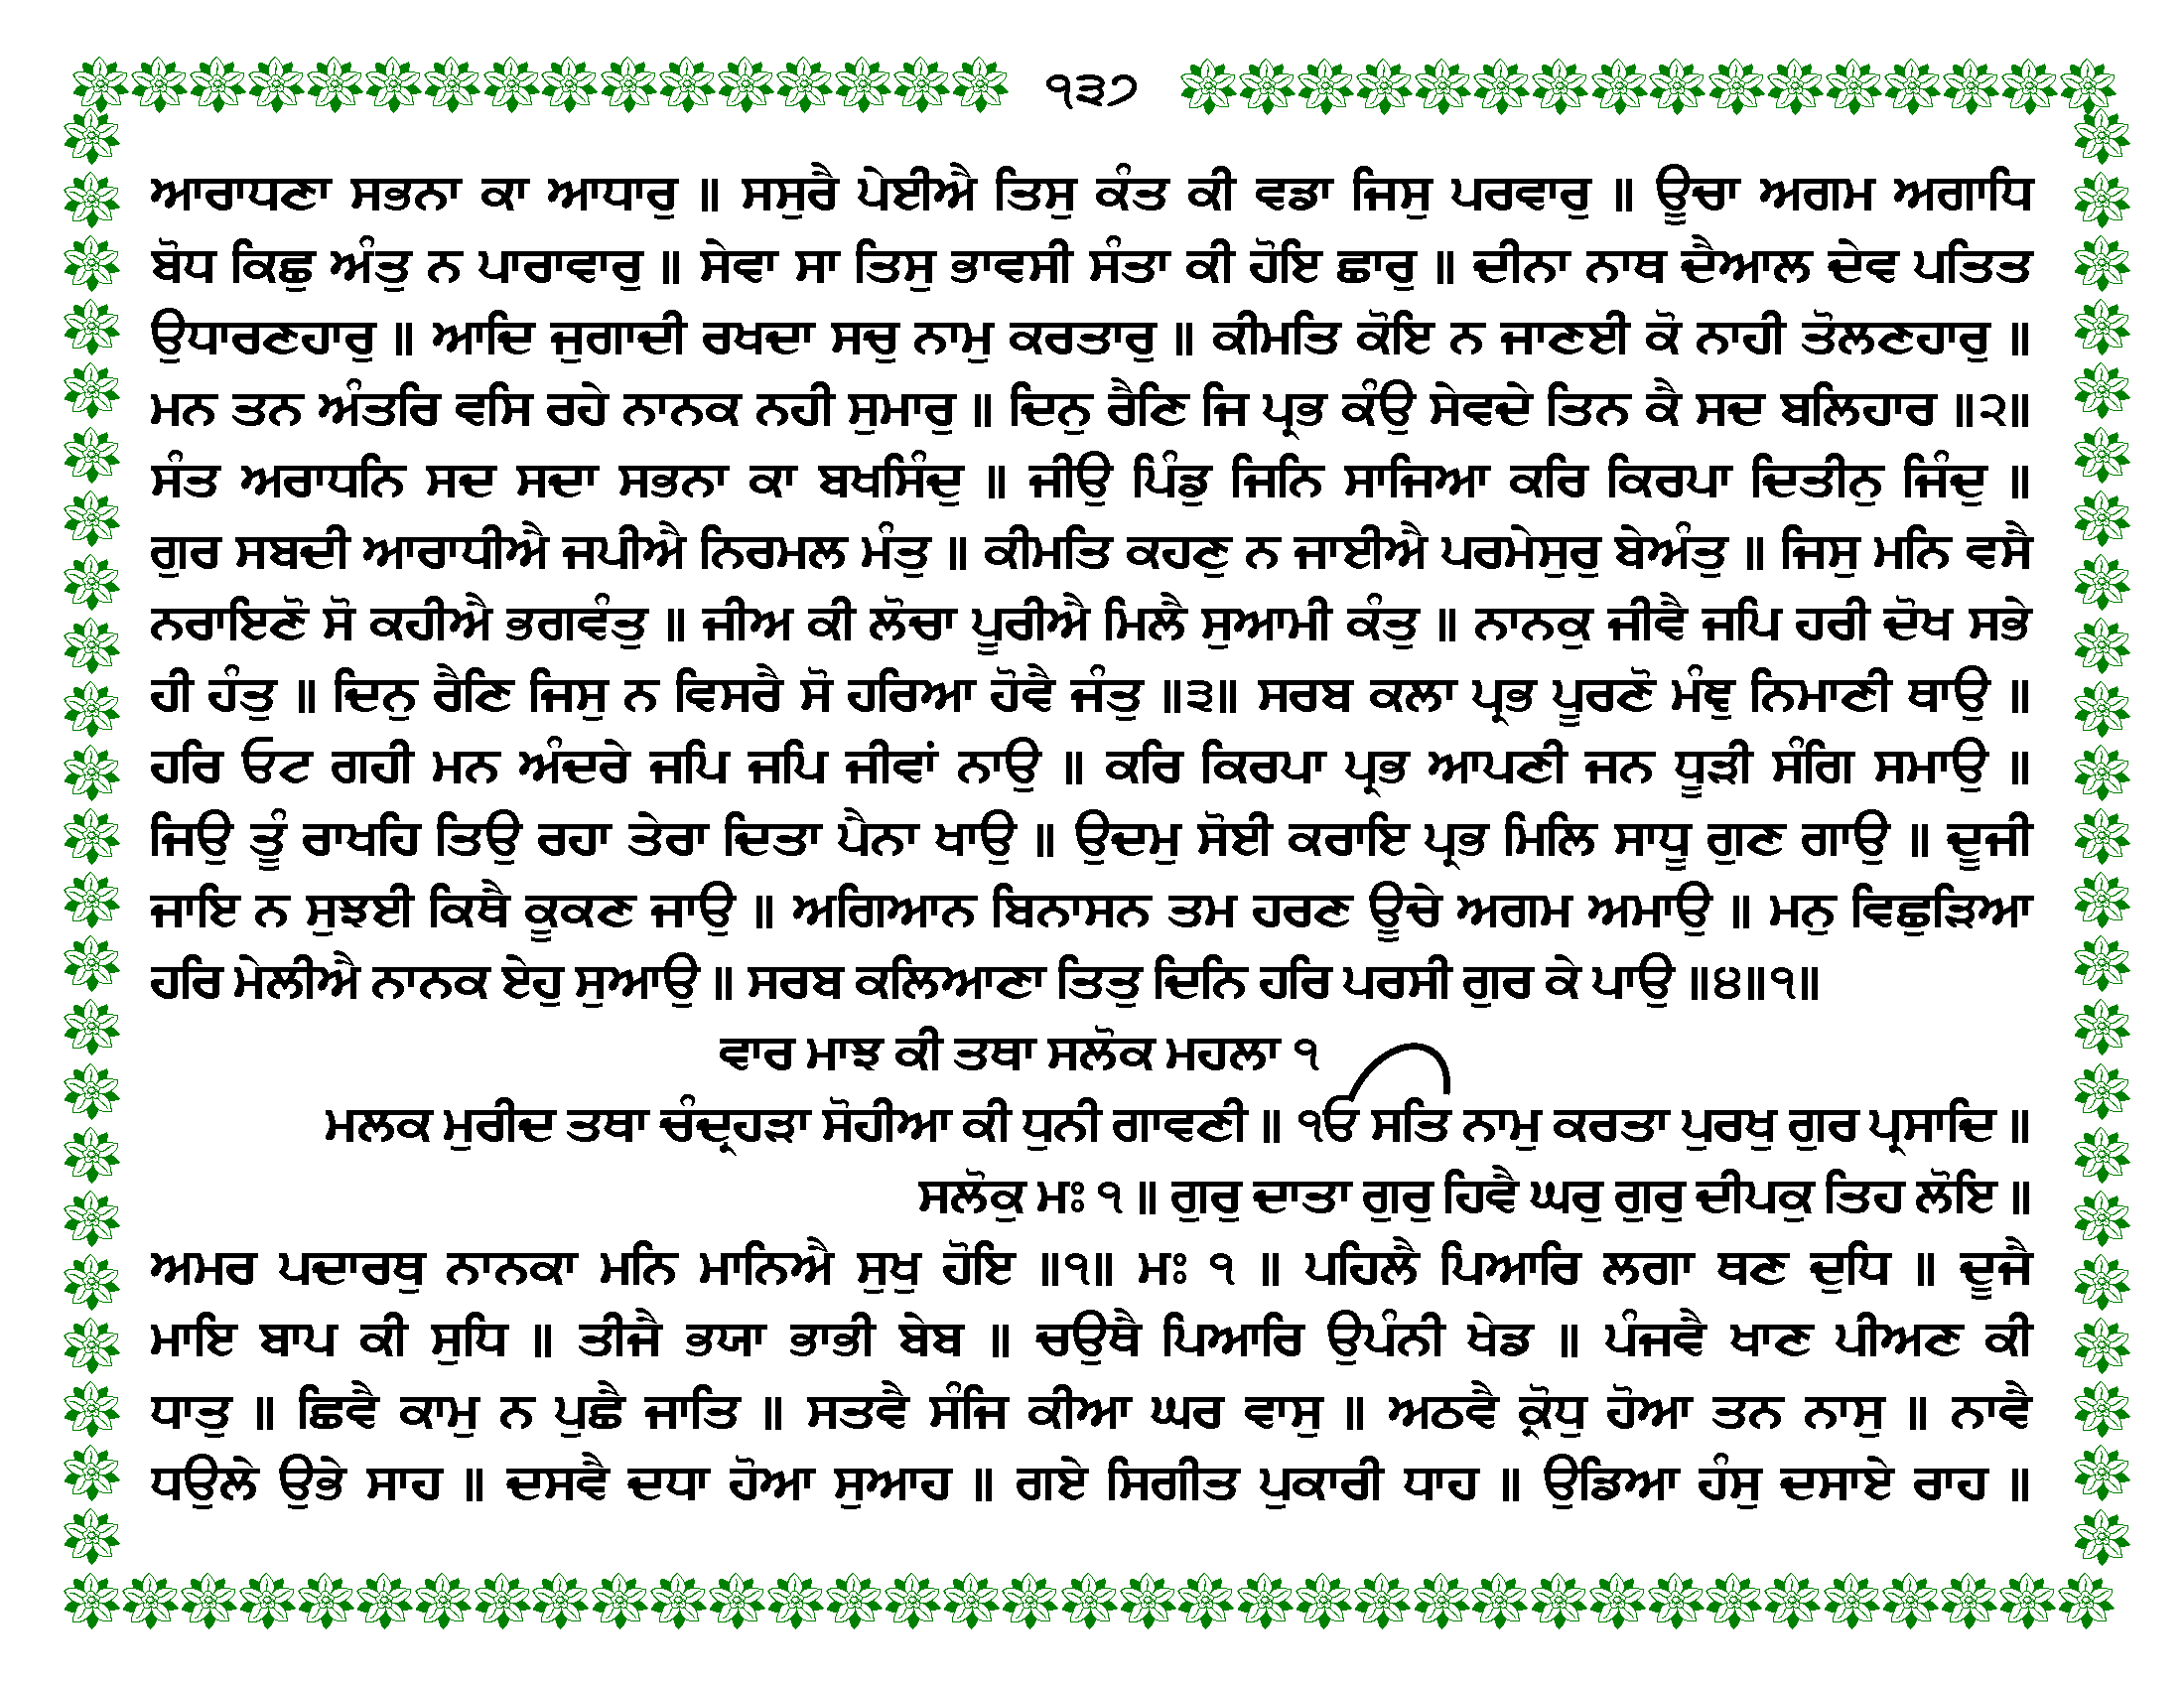 ੧੩੭
ਆਰਾਧਣਾ ਸਭਨਾ ਕਾ ਆਧਾਰੁ ॥ ਸਸੁਰੈ ਪੇਈਐ ਤਿਸੁ ਕੰਤ ਕੀ ਵਡਾ ਜਿਸੁ ਪਰਵਾਰੁ ॥ ਊਚਾ ਅਗਮ ਅਗਾਧਿ
ਬੋਧ ਕਿਛੁ ਅੰਤੁ ਨ ਪਾਰਾਵਾਰੁ ॥ ਸੇਵਾ ਸਾ ਤਿਸੁ ਭਾਵਸੀ ਸੰਤਾ ਕੀ ਹੋਇ ਛਾਰੁ ॥ ਦੀਨਾ ਨਾਥ ਦੈਆਲ ਦੇਵ ਪਤਿਤ
ਉਧਾਰਣਹਾਰੁ ॥ ਆਦਿ ਜੁਗਾਦੀ ਰਖਦਾ ਸਚੁ ਨਾਮੁ ਕਰਤਾਰੁ ॥ ਕੀਮਤਿ ਕੋਇ ਨ ਜਾਣਈ ਕੋ ਨਾਹੀ ਤੋਲਣਹਾਰੁ ॥
ਮਨ ਤਨ ਅੰਤਰਿ ਵਸਿ ਰਹੇ ਨਾਨਕ ਨਹੀ ਸੁਮਾਰੁ ॥ ਦਿਨੁ ਰੈਣਿ ਜਿ ਪ੍ਰਭ ਕੰਉ ਸੇਵਦੇ ਤਿਨ ਕੈ ਸਦ ਬਲਿਹਾਰ ॥੨॥
ਸੰਤ ਅਰਾਧਨਿ ਸਦ ਸਦਾ ਸਭਨਾ ਕਾ ਬਖਸਿੰਦੁ ॥ ਜੀਉ ਪਿੰਡੁ ਜਿਨਿ ਸਾਜਿਆ ਕਰਿ ਕਿਰਪਾ ਦਿਤੀਨੁ ਜਿੰਦੁ ॥
ਗੁਰ ਸਬਦੀ ਆਰਾਧੀਐ ਜਪੀਐ ਨਿਰਮਲ ਮੰਤੁ ॥ ਕੀਮਤਿ ਕਹਣੁ ਨ ਜਾਈਐ ਪਰਮੇਸੁਰੁ ਬੇਅੰਤੁ ॥ ਜਿਸੁ ਮਨਿ ਵਸੈ
ਨਰਾਇਣੋ ਸੋ ਕਹੀਐ ਭਗਵੰਤੁ ॥ ਜੀਅ ਕੀ ਲੋਚਾ ਪੂਰੀਐ ਮਿਲੈ ਸੁਆਮੀ ਕੰਤੁ ॥ ਨਾਨਕੁ ਜੀਵੈ ਜਪਿ ਹਰੀ ਦੋਖ ਸਭੇ
ਹੀ ਹੰਤੁ ॥ ਦਿਨੁ ਰੈਣਿ ਜਿਸੁ ਨ ਵਿਸਰੈ ਸੋ ਹਰਿਆ ਹੋਵੈ ਜੰਤੁ ॥੩॥ ਸਰਬ ਕਲਾ ਪ੍ਰਭ ਪੂਰਣੋ ਮੰਞੁ ਨਿਮਾਣੀ ਥਾਉ ॥
ਹਰਿ ਓਟ ਗਹੀ ਮਨ ਅੰਦਰੇ ਜਪਿ ਜਪਿ ਜੀਵਾਂ ਨਾਉ ॥ ਕਰਿ ਕਿਰਪਾ ਪ੍ਰਭ ਆਪਣੀ ਜਨ ਧੂੜੀ ਸੰਗਿ ਸਮਾਉ ॥
ਜਿਉ ਤੂੰ ਰਾਖਹਿ ਤਿਉ ਰਹਾ ਤੇਰਾ ਦਿਤਾ ਪੈਨਾ ਖਾਉ ॥ ਉਦਮੁ ਸੋਈ ਕਰਾਇ ਪ੍ਰਭ ਮਿਲਿ ਸਾਧੂ ਗੁਣ ਗਾਉ ॥ ਦੂਜੀ
ਜਾਇ ਨ ਸੁਝਈ ਕਿਥੈ ਕੂਕਣ ਜਾਉ ॥ ਅਗਿਆਨ ਬਿਨਾਸਨ ਤਮ ਹਰਣ ਊਚੇ ਅਗਮ ਅਮਾਉ ॥ ਮਨੁ ਵਿਛੁੜਿਆ
ਹਰਿ ਮੇਲੀਐ ਨਾਨਕ ਏਹੁ ਸੁਆਉ ॥ ਸਰਬ ਕਲਿਆਣਾ ਤਿਤੁ ਦਿਨਿ ਹਰਿ ਪਰਸੀ ਗੁਰ ਕੇ ਪਾਉ ॥੪॥੧॥
ਵਾਰ ਮਾਝ ਕੀ ਤਥਾ ਸਲੋਕ ਮਹਲਾ ੧
ਮਲਕ ਮੁਰੀਦ ਤਥਾ ਚੰਦ੍ਰਹੜਾ ਸੋਹੀਆ ਕੀ ਧੁਨੀ ਗਾਵਣੀ ॥ ੴ ਸਤਿ ਨਾਮੁ ਕਰਤਾ ਪੁਰਖੁ ਗੁਰ ਪ੍ਰਸਾਦਿ ॥
ਸਲੋਕੁ ਮਃ ੧ ॥ ਗੁਰੁ ਦਾਤਾ ਗੁਰੁ ਹਿਵੈ ਘਰੁ ਗੁਰੁ ਦੀਪਕੁ ਤਿਹ ਲੋਇ ॥
ਅਮਰ ਪਦਾਰਥੁ ਨਾਨਕਾ ਮਨਿ ਮਾਨਿਐ ਸੁਖੁ ਹੋਇ ॥੧॥ ਮਃ ੧ ॥ ਪਹਿਲੈ ਪਿਆਰਿ ਲਗਾ ਥਣ ਦੁਧਿ ॥ ਦੂਜੈ
ਮਾਇ ਬਾਪ ਕੀ ਸੁਧਿ ॥ ਤੀਜੈ ਭਯਾ ਭਾਭੀ ਬੇਬ ॥ ਚਉਥੈ ਪਿਆਰਿ ਉਪੰਨੀ ਖੇਡ ॥ ਪੰਜਵੈ ਖਾਣ ਪੀਅਣ ਕੀ
ਧਾਤੁ ॥ ਛਿਵੈ ਕਾਮੁ ਨ ਪੁਛੈ ਜਾਤਿ ॥ ਸਤਵੈ ਸੰਜਿ ਕੀਆ ਘਰ ਵਾਸੁ ॥ ਅਠਵੈ ਕ੍ਰੋਧੁ ਹੋਆ ਤਨ ਨਾਸੁ ॥ ਨਾਵੈ
ਧਉਲੇ ਉਭੇ ਸਾਹ ॥ ਦਸਵੈ ਦਧਾ ਹੋਆ ਸੁਆਹ ॥ ਗਏ ਸਿਗੀਤ ਪੁਕਾਰੀ ਧਾਹ ॥ ਉਡਿਆ ਹੰਸੁ ਦਸਾਏ ਰਾਹ ॥